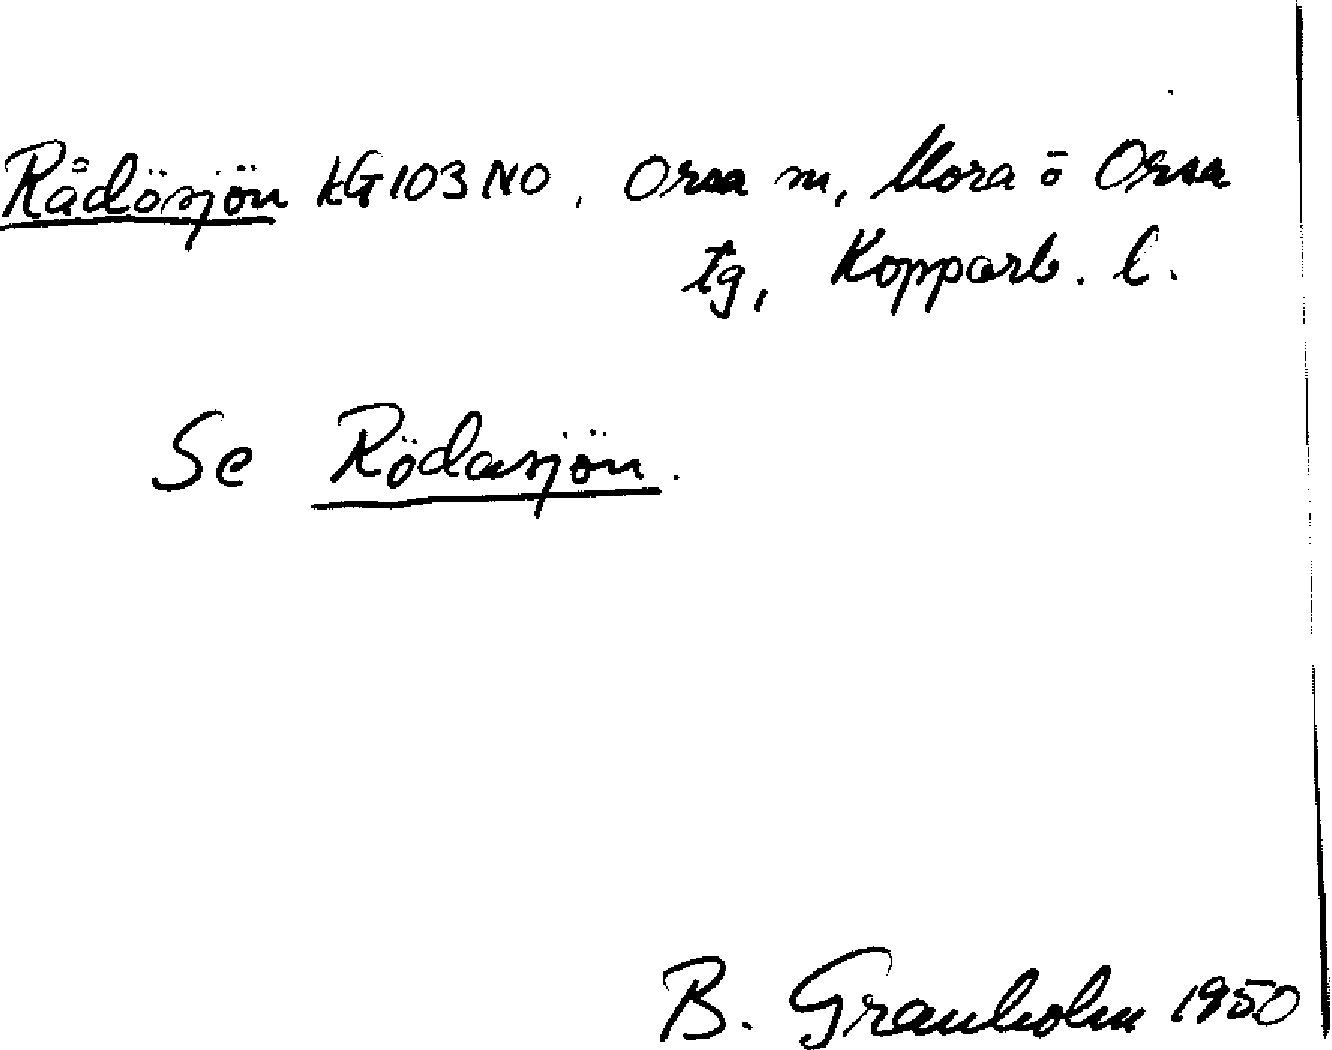 Rådösjön kG103NO, Orsa m, Mora ō Orsa
tg, Kopparb. l.
Se Rödasjön.
B. Granholm 1950